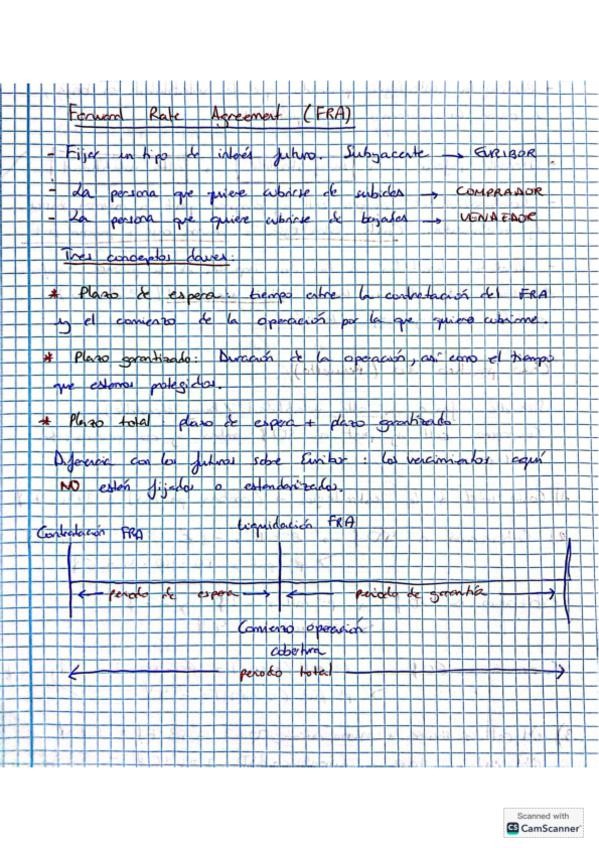 Forward Rate Agreement (FRA)
- Fijar un tipo de interés futuro. Subyacente → EURIBOR
- La persona que quiere cubrirse de subidas → COMPRADOR
- La persona que quiere cubrirse de bajadas → VENDEDOR
Tres conceptos claves:
* Plazo de espera: tiempo entre la contratación del FRA
y el comienzo de la operación por la que quiero cubrirme.
* Plazo garantizado: Duración de la operación, así como el tiempo
que estamos protegidos.
* Plazo total plazo de espera + plazo garantizado
Diferencia con los futuros sobre Euribor: los vencimientos aquí
NO están fijados o estandarizados.
Contratación FRA
Liquidación FRA
periodo de espera
periodo de garantía
Comienzo operación
cobertura
periodo total
Scanned with
CS CamScanner